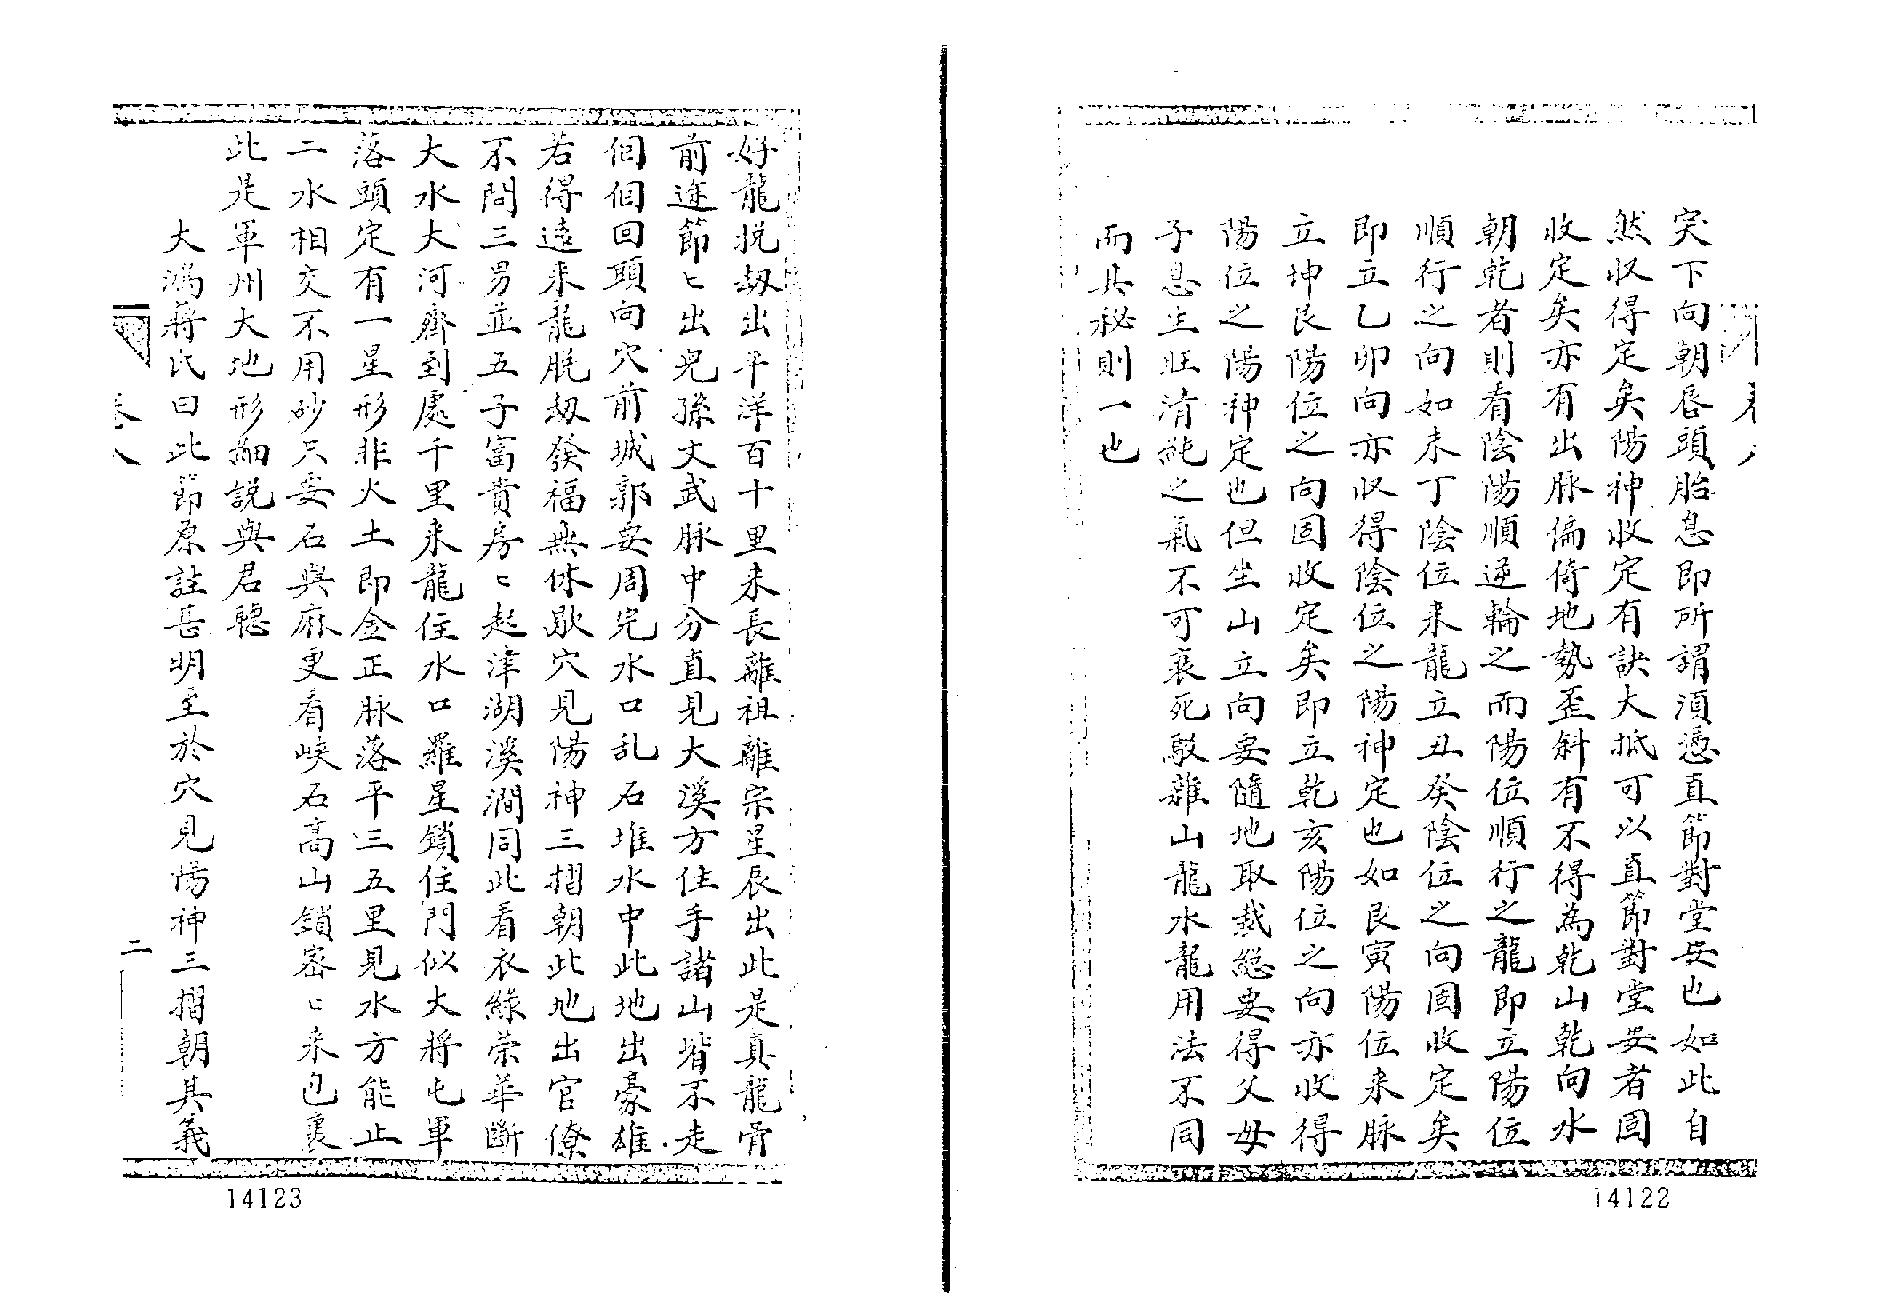 穴下向朝唇頭胎息即所謂須憑直節對堂安也如此自
然收得定矣陽神收定有訣大抵可以直節對堂安者固
收定矣亦有出脉偏倚地勢歪斜有不得為乾山乾向水
朝乾者則看陰陽順逆輪之而陽位順行之龍即立陽位
順行之向如未丁陰位來龍立丑癸陰位之向固收定矣
即立乙卯向亦収得陰位之陽神定也如艮寅陽位来脉
立坤艮陽位之向固收定矣即立乾亥陽位之向亦收得
陽位之陽神定也但坐山立向要隨地取裁總要得父母
子息生旺清純之氣不可衰死駁雜山龍水龍用法不同
而其秘則一也
14122
好龍抝刼出平洋百十里来長離祖離宗星辰出此是真龍骨
前途節〻出兒孫文武脉中分直見大溪方住手諸山皆不走
個個回頭向穴前城郭要周完水口乱石堆水中此地出豪雄
若得遠来龍脱刼發福無休歇穴見陽神三摺朝此地出官僚
不問三男並五子富貴房〻起津湖溪澗同此看衣綠荣華斷
大水大河齊到處千里来龍住水口羅星鎖住門似大將屯軍
落頭定有一星形非火土即金正脉落平三五里見水方能止
二水相交不用砂只要石與麻更看峡石高山鎖密〻来包裹
此是軍州大地形細說與君聽
大鴻蔣氏曰此節原註甚明至於穴見陽神三摺朝其義
卷八
二
14123